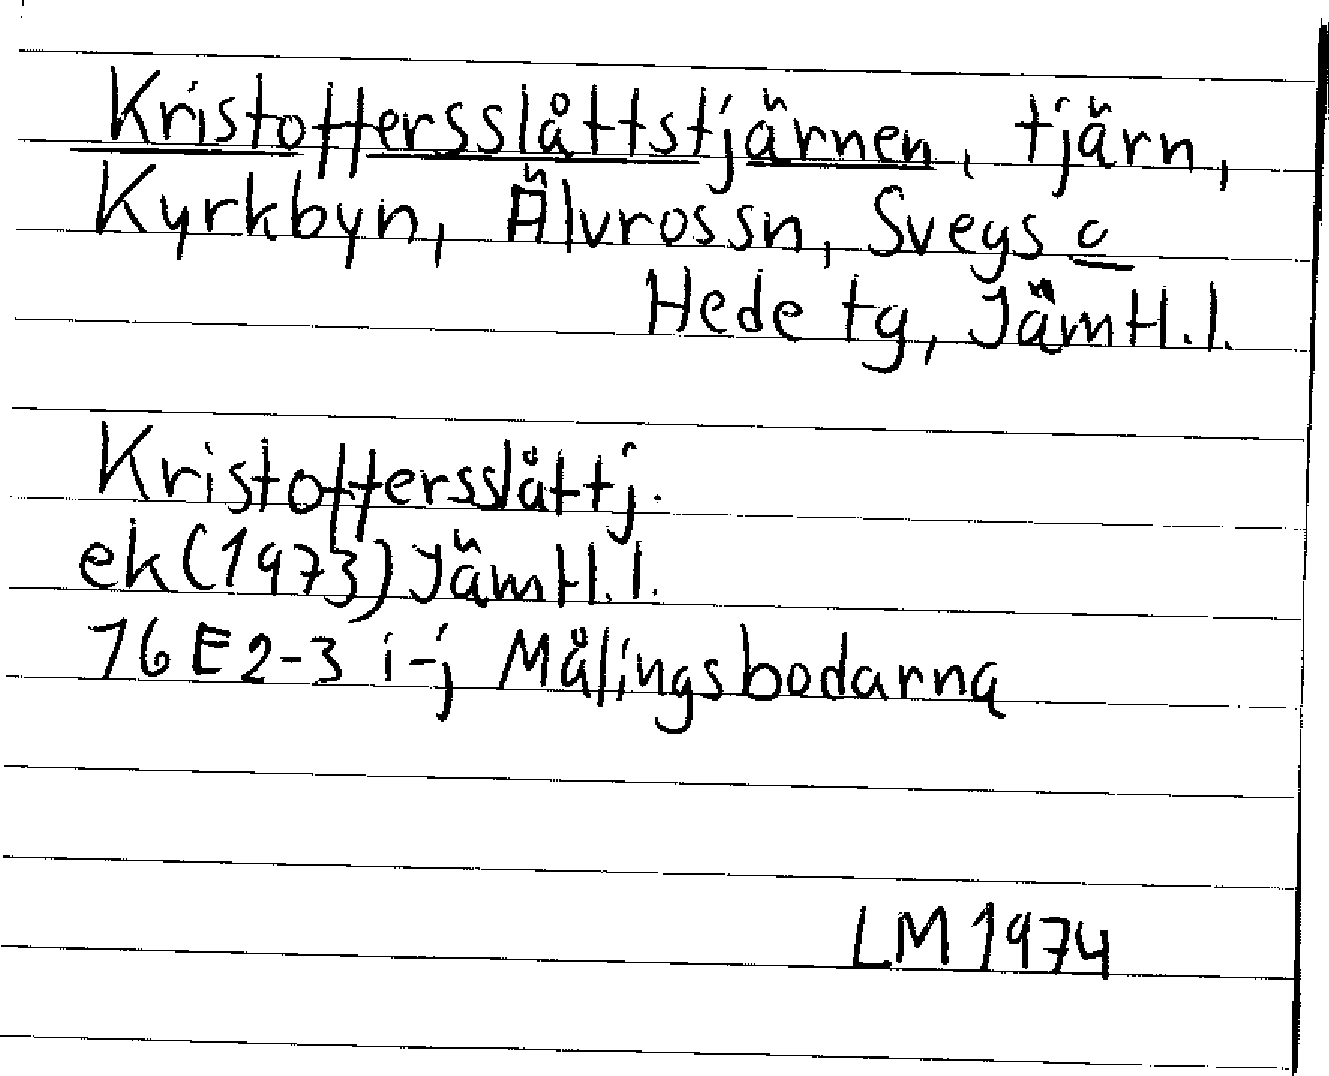 Kristoffersslåttstjärnen, tjärn,
Kyrkbyn, Älvrossn, Svegs o
Hede tg, Jämtl.l.
Kristoffersslåttj.
ek (1973) Jämtl.l.
16 E 2-3 i-j Målingsbodarna
LM 1974